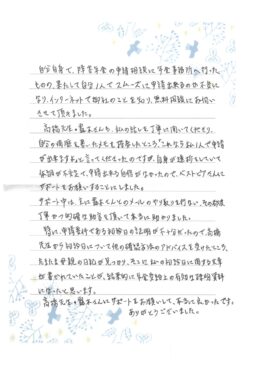 自分自身で、障害年金の申請相談に年金事務所へ行った
ものの、果たして自分1人でスムーズに申請出来るのか不安に
なり、インターネットで御社のことを知り、無料相談にお伺い
させて頂きました。
高橋先生、藤本さんも、私の話しを丁寧に聞いてくださり、
自分の病歴を書いたメモを読まれたところ「これなら私1人で申請
が出来ますよ」と言ってくださったのですが、自身が遠方としていて
体調が不安で、申請出来る自信がなかったので、ベストピアさんに
サポートをお願いすることにしました。
サポート中は、主に藤本さんとのメールのやり取りを行い、その都度
丁寧かつ的確な助言を頂いて本当に助かりました。
特に、申請要件である初診日の証明が不十分だったので、高橋
先生から初診日について他の確認方法のアドバイスを受けたところ、
たまたま母親の日記が見つかり、そこに私の初診日に関する文章
が書かれていたことが、結果的に年金受給上の有効な証明資料
になったと思います。
高橋先生、藤本さんにサポートをお願いして、本当に良かったです。
ありがとうございました。